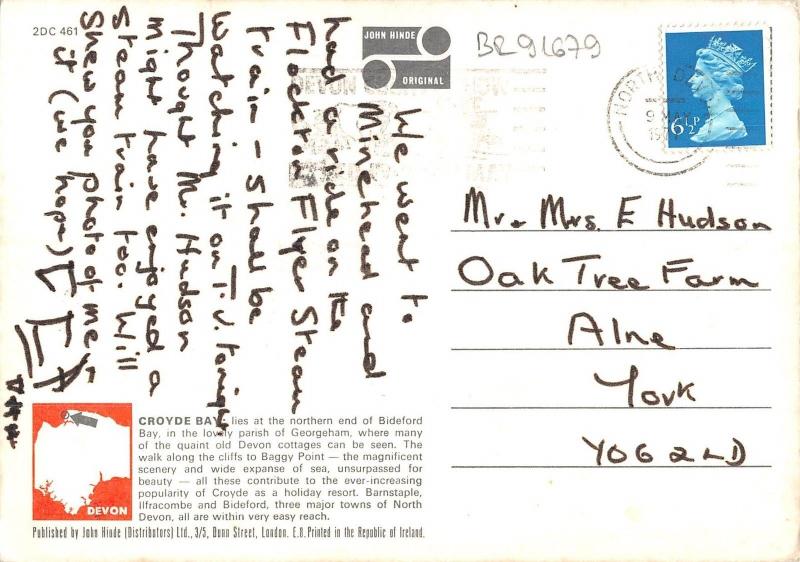 2DC 461
JOHN HINDE
ORIGINAL
BR91679
NORTH DE
9 MAY
6½P
DEVON SHOW
MAY
We went to
Minehead and
had a ride on the
Flockton Flyer Steam
train - Shall be
watching it on T.V. tonight
Thought Mr. Hudson
might have enjoyed a
steam train too. Will
Shew you photo of me in
it (we hope)
Mr & Mrs. E Hudson
Oak Tree Farm
Alne
York
YO6 2LD
CROYDE BAY lies at the northern end of Bideford
Bay, in the lovely parish of Georgeham, where many
of the quaint old Devon cottages can be seen. The
walk along the cliffs to Baggy Point — the magnificent
scenery and wide expanse of sea, unsurpassed for
beauty — all these contribute to the ever-increasing
popularity of Croyde as a holiday resort. Barnstaple,
Ilfracombe and Bideford, three major towns of North
Devon, all are within very easy reach.
DEVON
Published by John Hinde (Distributors) Ltd., 3/5, Dunn Street, London. E.8. Printed in the Republic of Ireland.